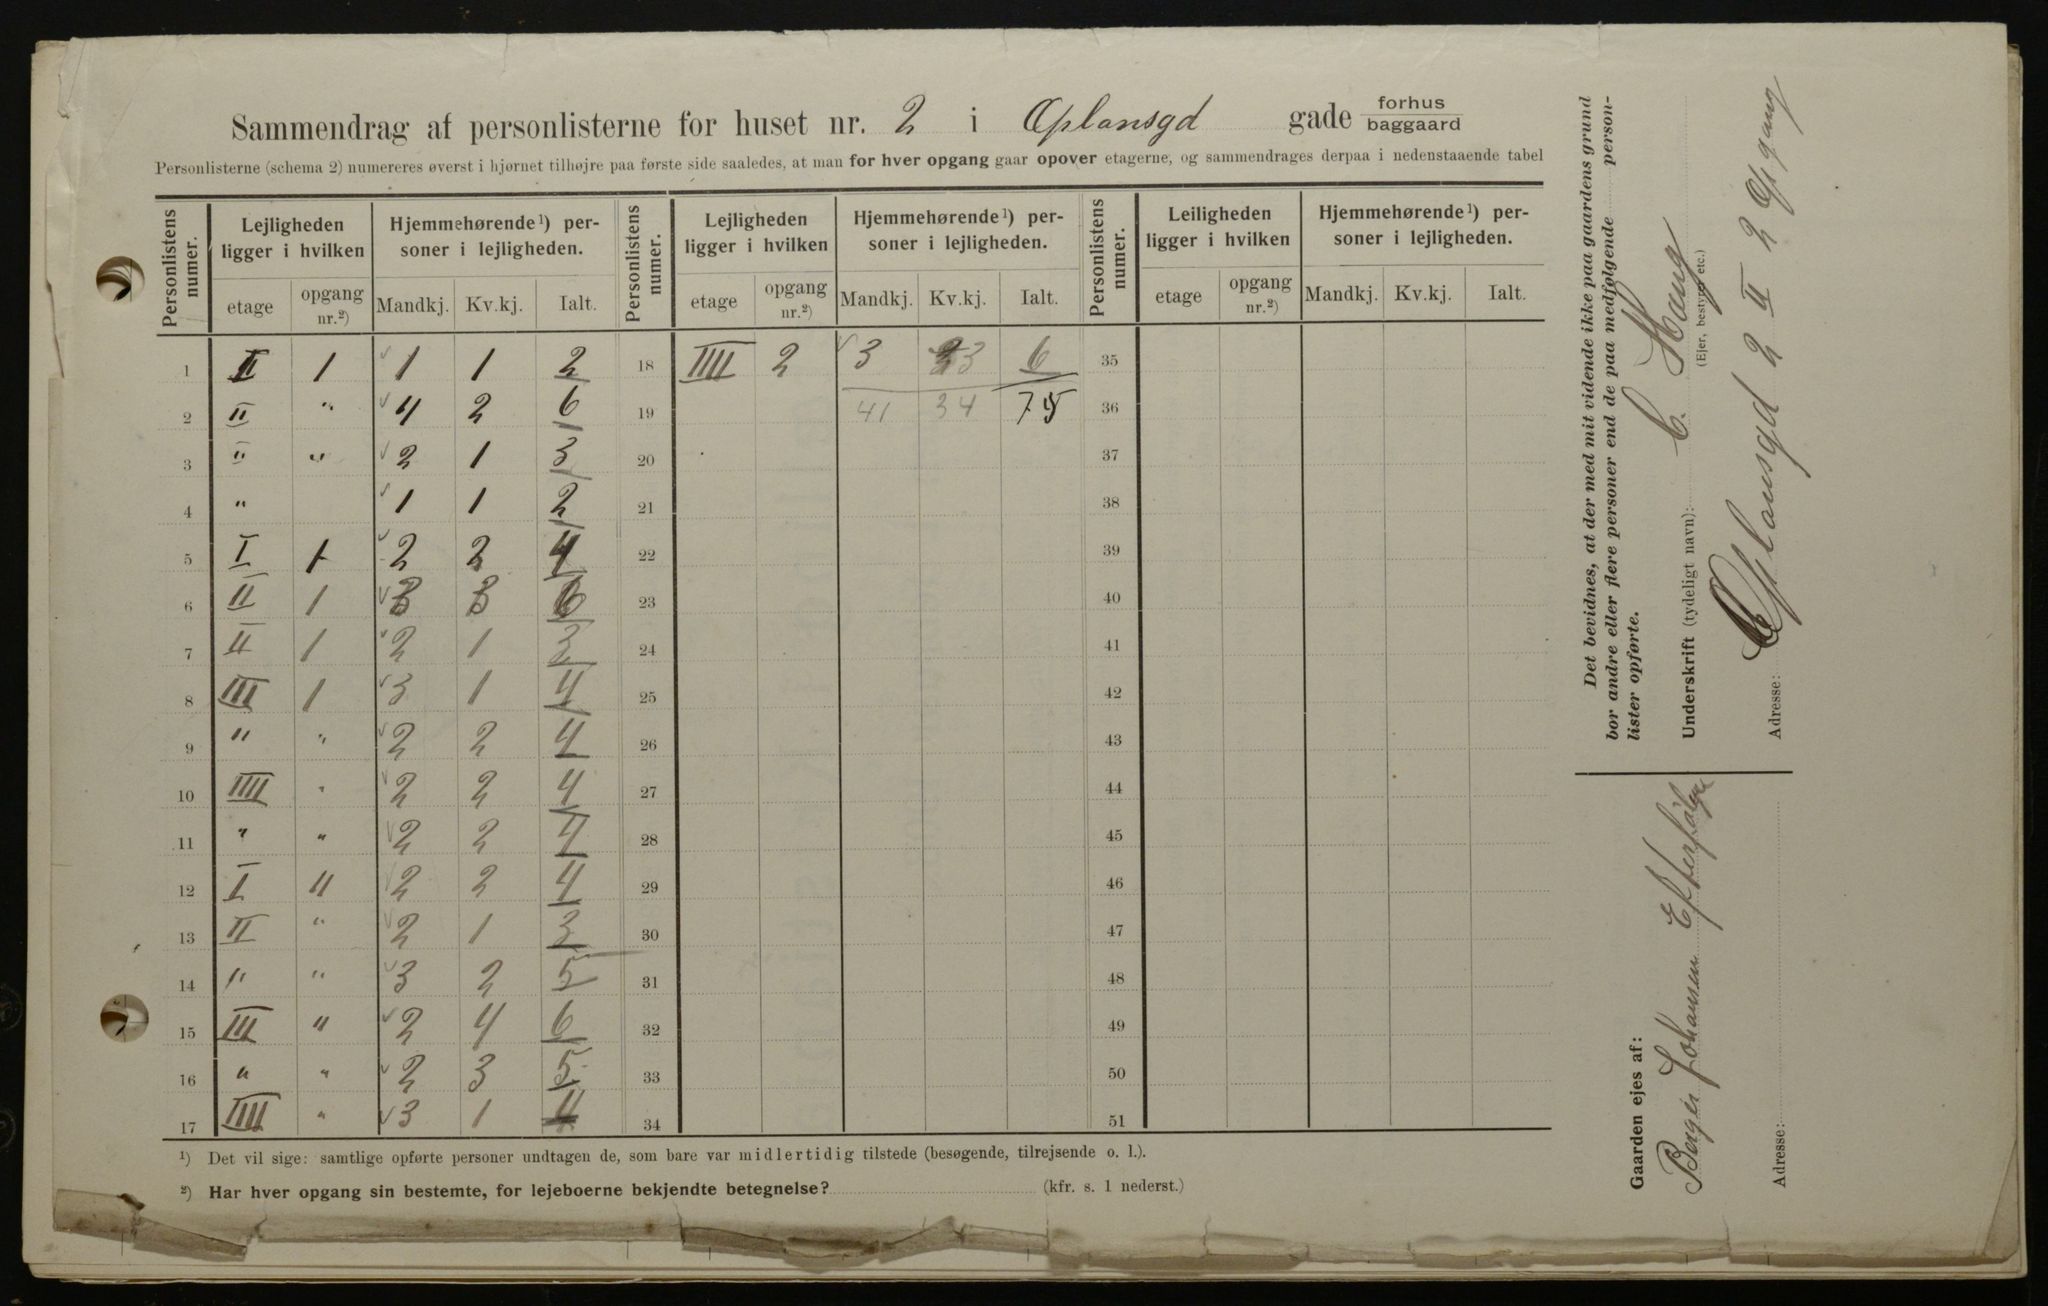 Sammendrag af personlisterne for huset nr. 2 i Oplansgd gade forhus baggaard
Personlisterne (schema 2) numereres øverst i hjørnet tilhøjre paa første side saaledes, at man for hver opgang gaar opover etagerne, og sammendrages derpaa i nedenstaaende tabel
Personlistens numer. Lejligheden ligger i hvilken Hjemmehørende ¹) personer i lejligheden. Personlistens numer. Lejligheden ligger i hvilken Hjemmehørende ¹) personer i lejligheden. Personlistens numer. Leiligheden ligger i hvilken Hjemmehørende ¹) personer i lejligheden.
etage opgang nr.²) Mandkj. Kv.kj. Ialt. etage opgang nr.²) Mandkj. Kv.kj. Ialt. etage opgang nr.²) Mandkj. Kv.kj. Ialt.
1 II 1 1 1 2 18 IIII 2 3 3 6 35
2 II " 4 2 6 19 41 34 75 36
3 " " 2 1 3 20 37
4 " 1 1 2 21 38
5 I 1 2 2 4 22 39
6 II 1 3 3 6 23 40
7 II 1 2 1 3 24 41
8 III 1 3 1 4 25 42
9 " " 2 2 4 26 43
10 IIII " 2 2 4 27 44
11 " " 2 2 4 28 45
12 I 11 2 2 4 29 46
13 II " 2 1 3 30 47
14 " " 3 2 5 31 48
15 III " 2 4 6 32 49
16 " " 2 3 5 33 50
17 IIII " 3 1 4 34 51
¹) Det vil sige: samtlige opførte personer undtagen de, som bare var midlertidig tilstede (besøgende, tilrejsende o. l.).
²) Har hver opgang sin bestemte, for lejeboerne bekjendte betegnelse? (kfr. s. 1 nederst.)
Det bevidnes, at der med mit vidende ikke paa gaardens grund
bor andre eller flere personer end de paa medfølgende personlister opførte.
Underskrift (tydeligt navn): C. Haug
(Ejer, bestyrer etc.)
Adresse: Oplansgd 2 II 2 Opgang
Gaarden ejes af:
Berger Johansen Efterfølger
Adresse: